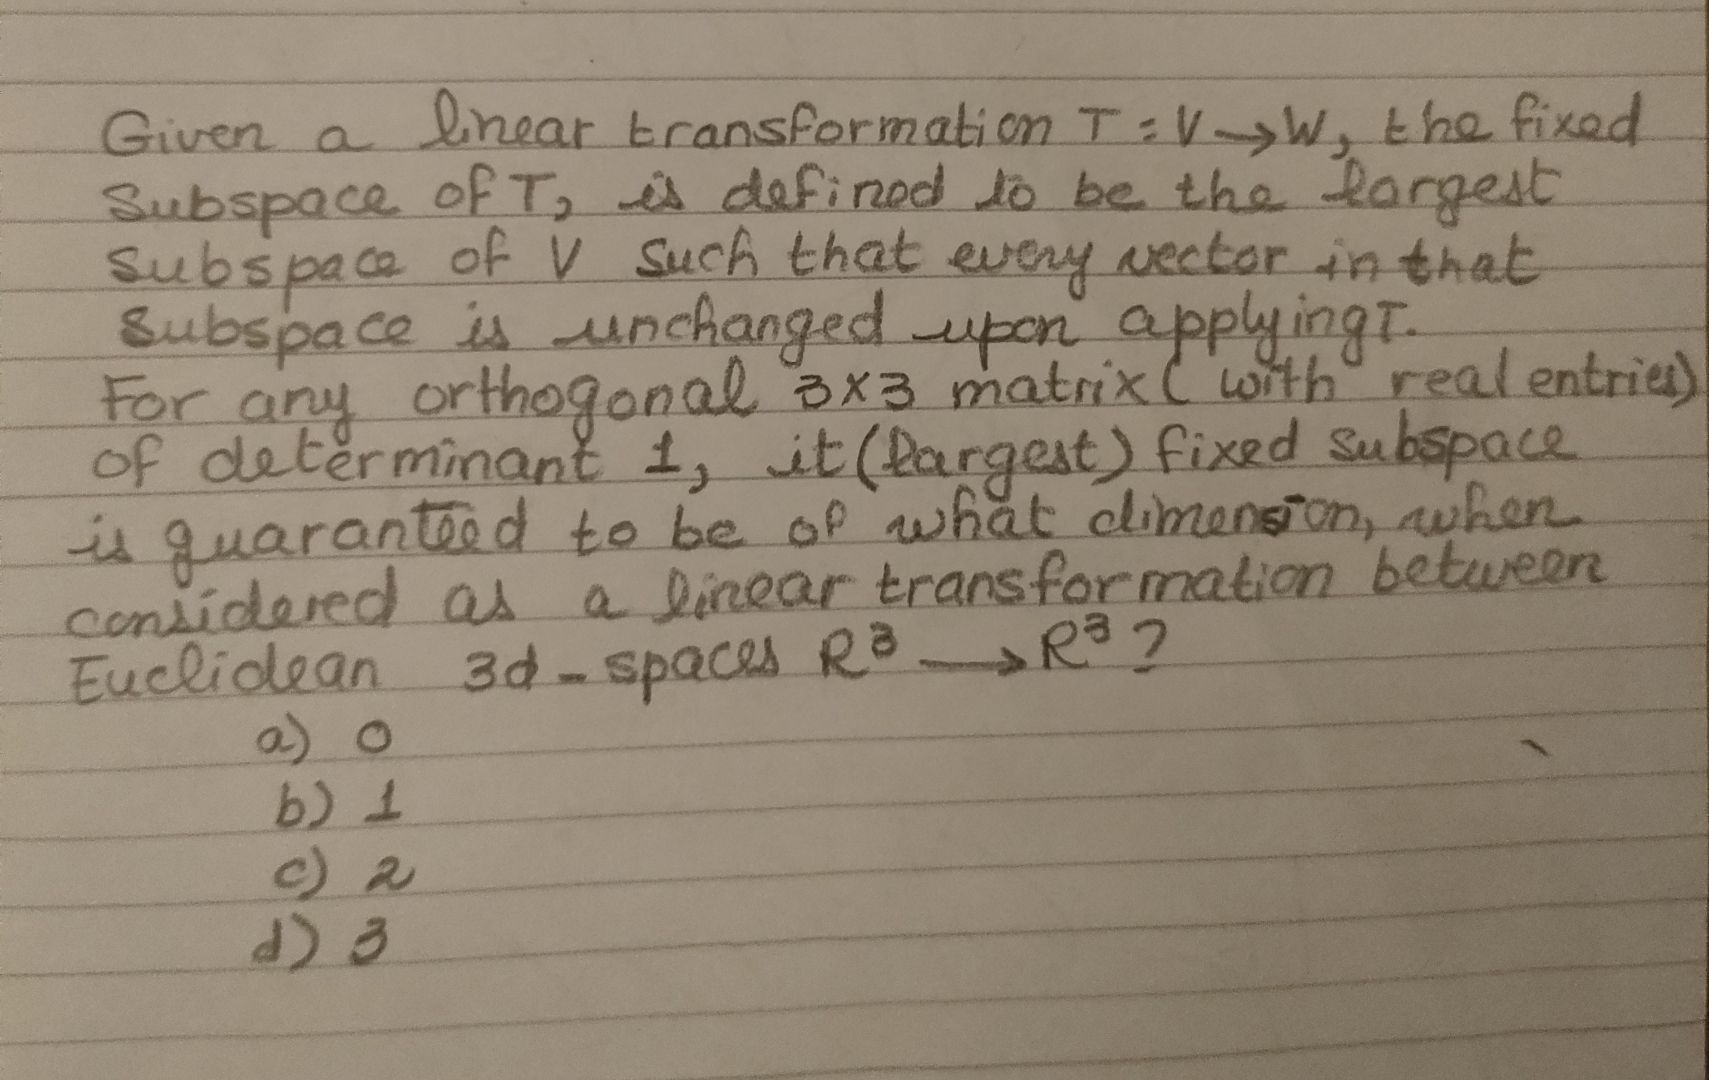 Given a linear transformation T = V → W, the fixed
Subspace of T, is defined to be the largest
subspace of V such that every vector in that
subspace is unchanged upon applying T.
For any orthogonal 3x3 matrix ( with real entries)
of determinant 1, it (largest) fixed subspace
is guaranteed to be of what dimension, when
considered as a linear transformation between
Euclidean 3d - spaces R³ → R³ ?
a) 0
b) 1
c) 2
d) 3